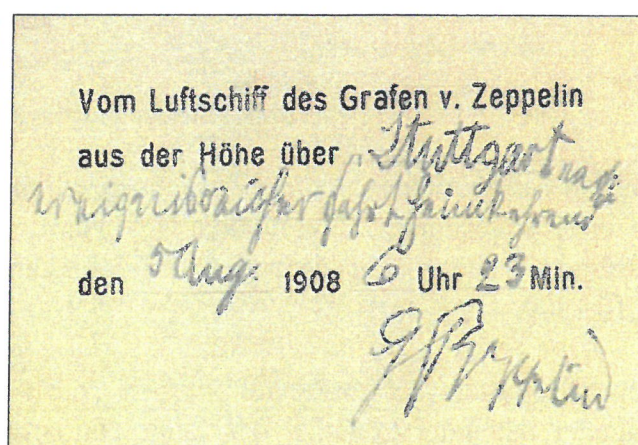 Vom Luftschiff des Grafen v. Zeppelin
aus der Höhe über Stuttgart nach
ereignisreicher Fahrt heimkehrend
den 5 Aug. 1908 6 Uhr 23 Min.
GfZeppelin